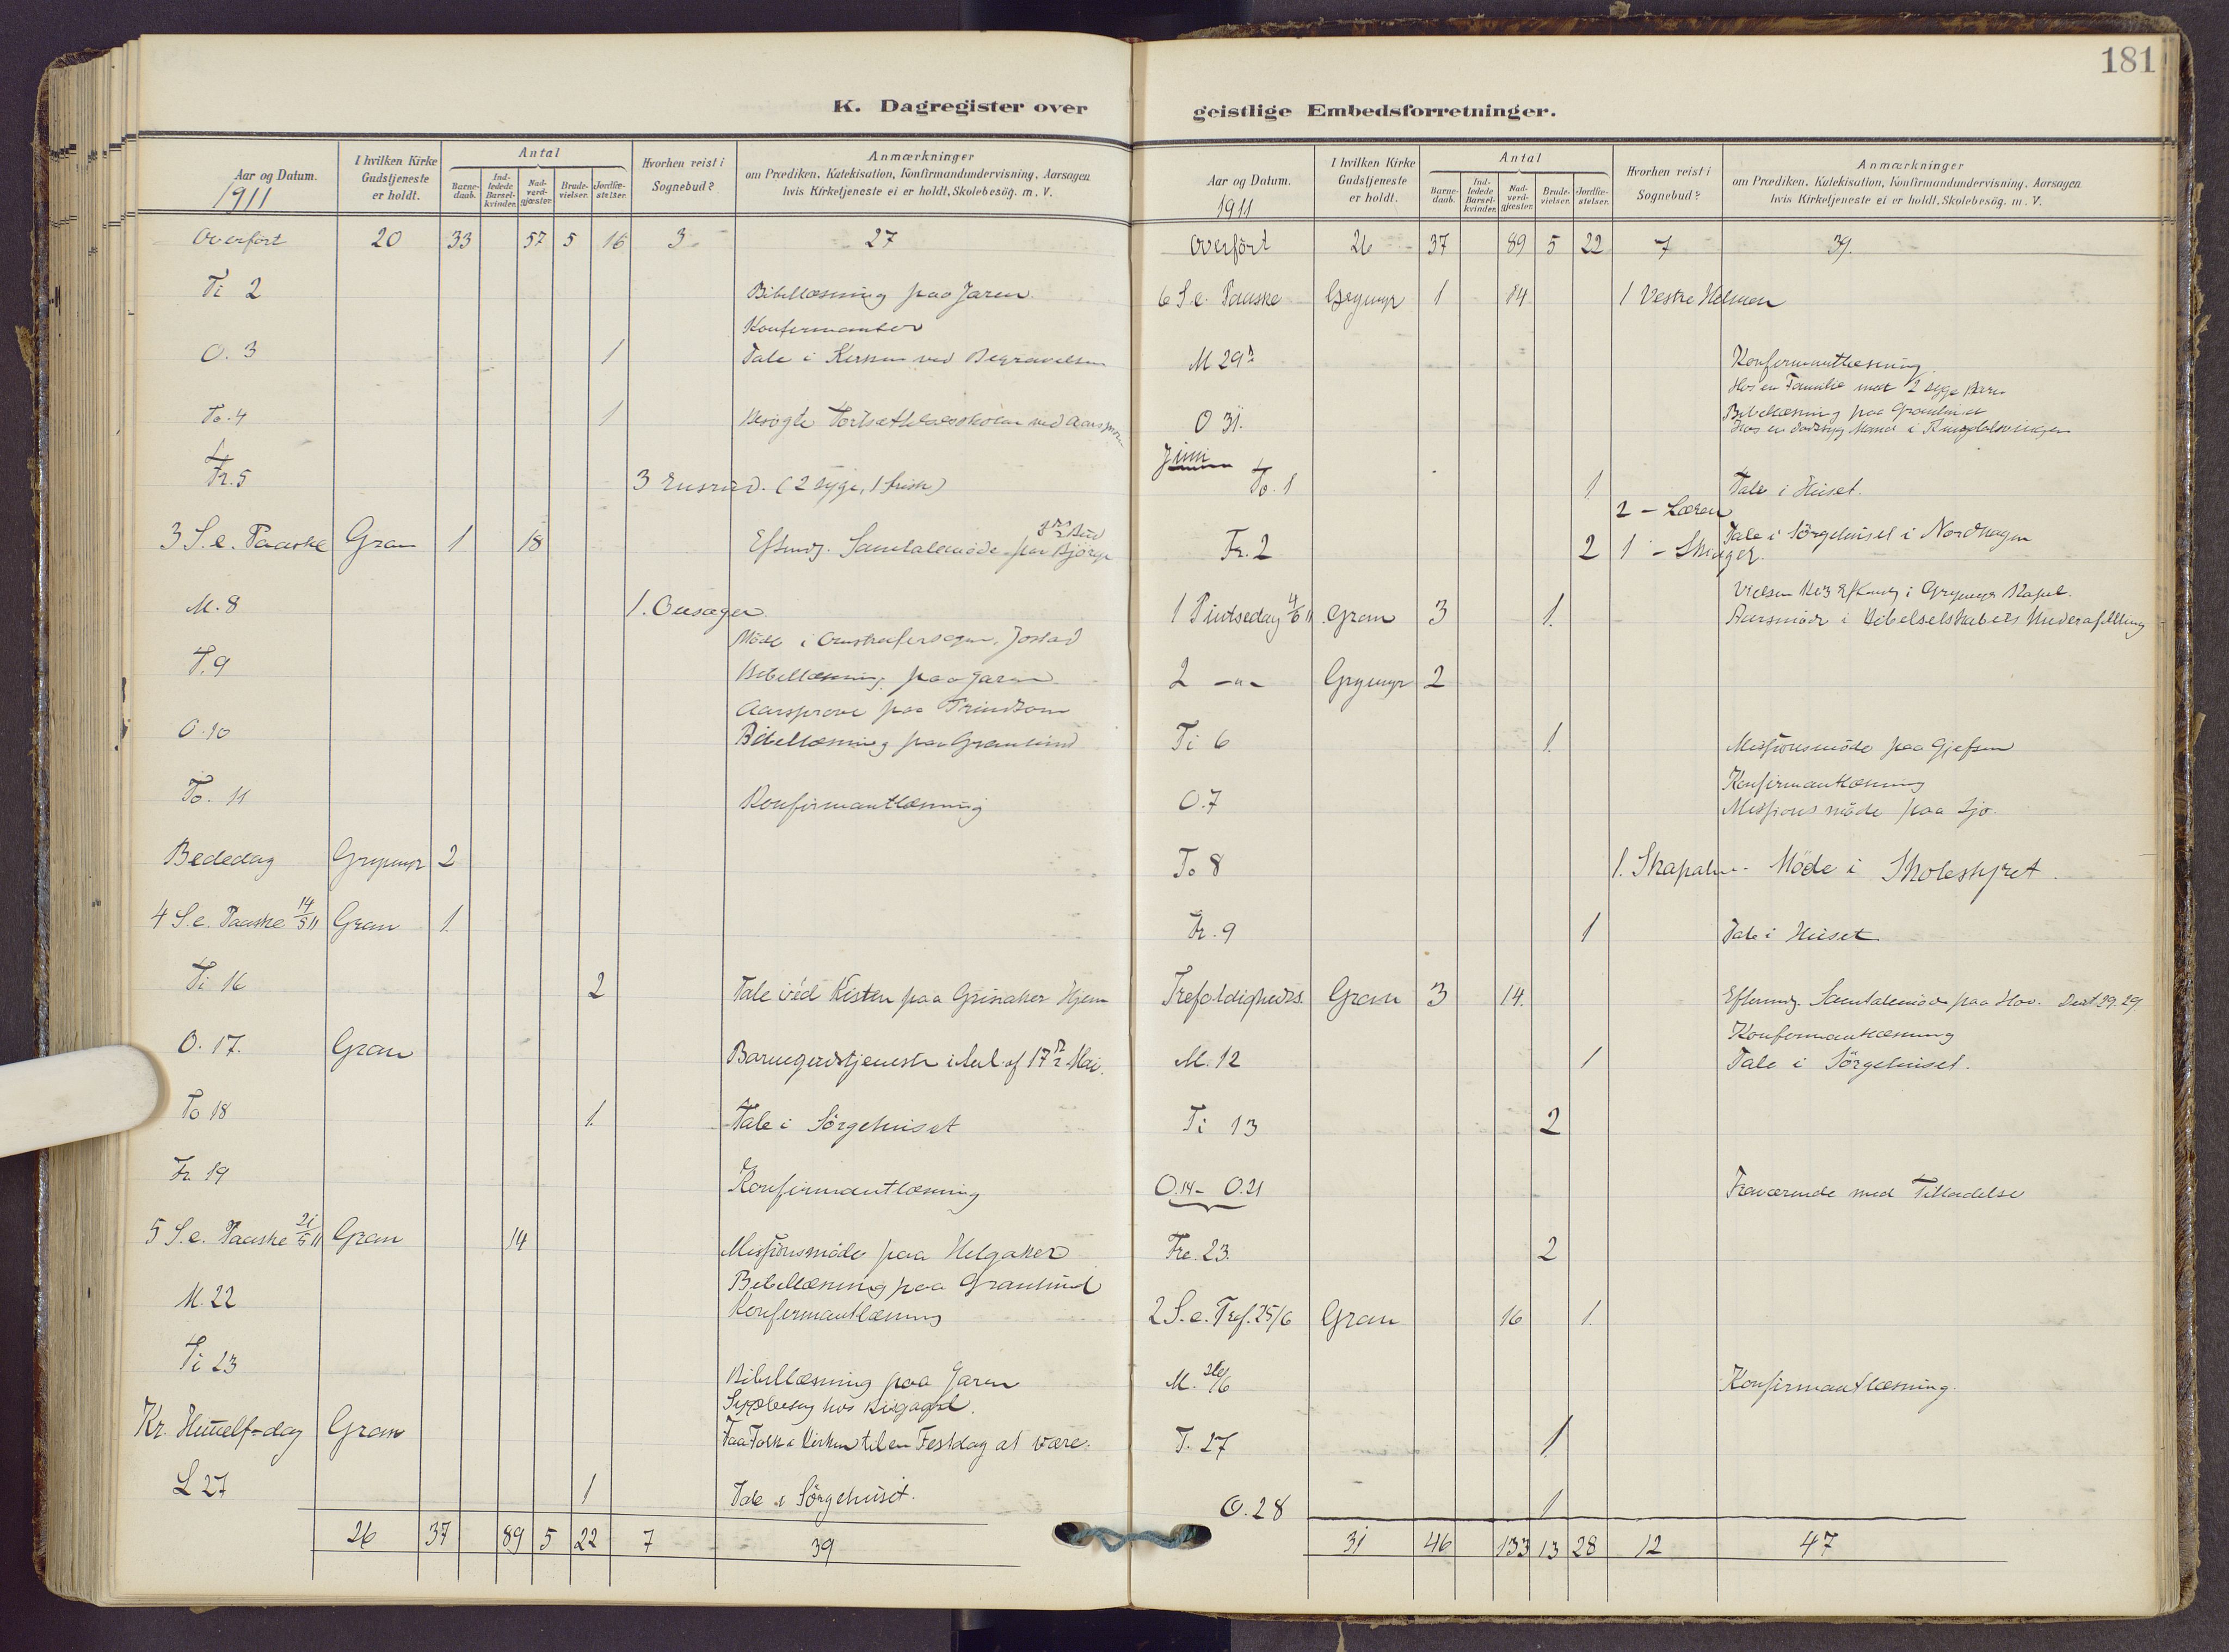 K. Dagregister over
Aar og Datum. I hvilken Kirke Gudstjeneste er holdt. Antal Barnedaab. Indledede Barselkvinder. Nadverdgjæster. Brudevielser. Jordfæstelser. Hvorhen reist i Sognebud? Anmærkninger om Prædiken, Katekisation, Konfirmandundervisning, Aarsagen hvis Kirketjeneste ei er holdt, Skolebesøg. m. V.
1911
Overført 20 33 57 5 16 3 27
Ti 2 Bibellæsning paa Jaren
Konfirmanter
O. 3 1 Tale i Kirken ved Begravelsen
To. 4 1 Besøgte Fortsættelsesskolen ved
Fr. 5 3 (2 syge, 1 frisk)
3 S. e. Paaske Gran 1 18 Eftmdg. Samtalemøde paa Bjørge
M. 8 1.
Møde i Jostad
T. 9 Bibellæsning paa Jaren
Aarsprøve paa Trintom
O. 10 Bibellæsning paa Granlund
To. 11 Konfirmantlæsning
Bededag Grymyr 2
4 S. e. Paaske 14/5 11 Gran 1.
Ti 16 2 Tale ved Kisten paa Grinaker Hjem
O. 17. Gran Barnegudstjeneste i Anl. af 17de Mai.
To 18 1. Tale i Sørgehuset
Fr. 19 Konfirmantlæsning
5 S. e. Paaske 21/5 11 Gran 14 Missionsmøde paa Helgaker
Bibellæsning paa Granlund
M. 22 Konfirmantlæsning
Ti 23 Bibellæsning paa Jaren
hos
Kr. Himmelf-dag Gran Faa Folk i Kirken til en Festdag at være.
L 27 1 Tale i Sørgehuset.
26 37 89 5 22 7 39
181
geistlige Embedsforretninger.
Aar og Datum. I hvilken Kirke Gudstjeneste er holdt. Antal Barnedaab. Indledede Barselkvinder. Nadverdgjæster. Brudevielser. Jordfæstelser. Hvorhen reist i Sognebud? Anmærkninger om Prædiken, Katekisation, Konfirmandundervisning, Aarsagen hvis Kirketjeneste ei er holdt, Skolebesøg. m. V.
1911
Overført 26 37 89 5 22 7 39.
6 S. e. Paaske Grymyr 1 14 1 Vestre Helmen
M 29 Konfirmantlæsning
Hos en Familie med 2 syge Barn
O 31. Bibellæsning paa Granlund
Hos en dødssyg Mand i
Juni
To. 1 1 Tale i Huset.
2 -
Fr. 2 2 1 - Tale i Sørgehuset i Nordhagen
Vielsen Kl 3 Eftmdg i Grymyr Kapel.
1 Pintsedag 4/6 11 Gran 3 1. Aarsmøde i Bibelselskabets Underafdeling
2 -"- Grymyr 2
Ti 6 1. Missionsmøde paa Gjefsen
Konfirmantlæsning
O. 7 Missionsmøde paa Sjo.
To 8 1. Møde i Skolestyret.
Fr. 9 1 Tale i Huset
Trefoldigheds Gran 3 14. Eftmdg. Samtalemøde paa Hov.
Konfirmantlæsning
M. 12 1 Tale i Sørgehuset.
Ti 13 2
O. 14 - O. 21 Fraværende med Tilladelse
Fre. 23. 2
2 S. e. Tref. 25/6 Gran 16 1.
M. 26/6 Konfirmantlæsning.
T. 27 1
O. 28 1
31 46 133 13 28 12 47